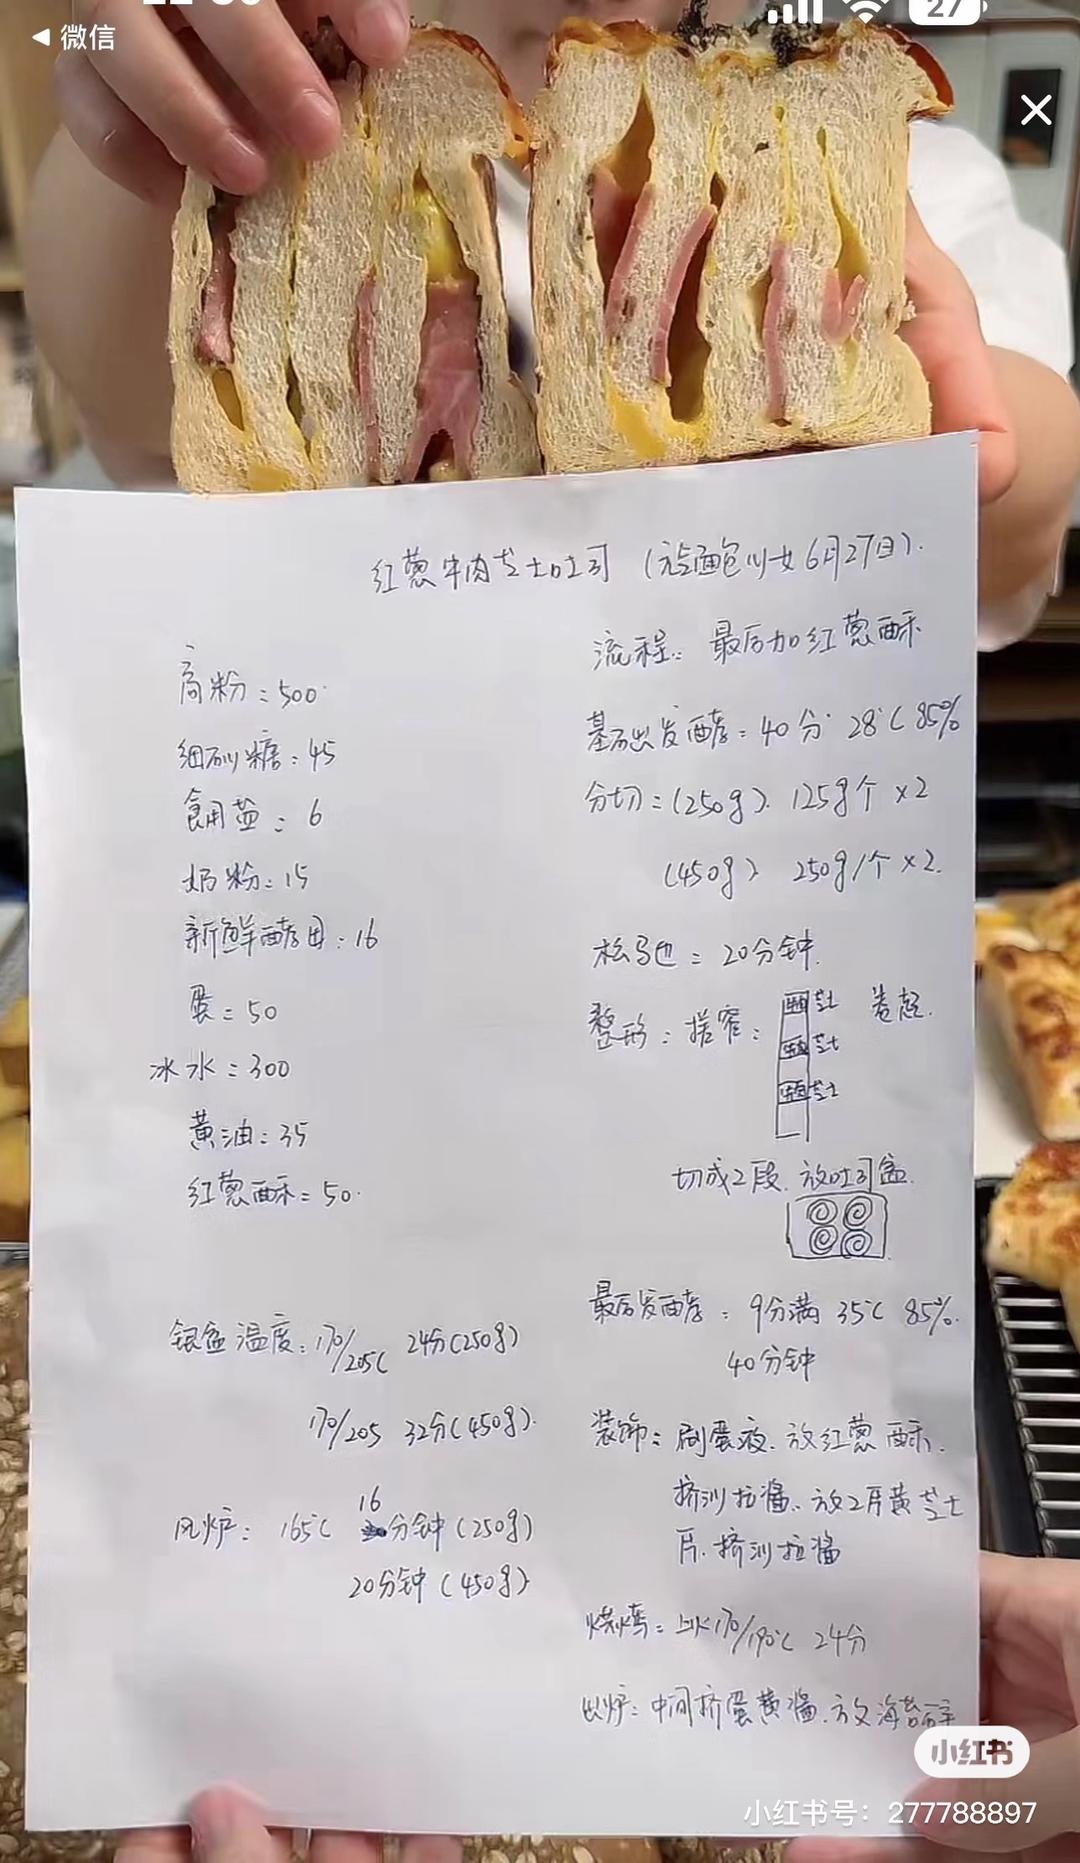 微信
27
红葱牛肉芝士吐司 (元气面包少女 6月27日).
高粉：500
细砂糖：45
食用盐：6
奶粉：15
新鲜酵母：16
蛋：50
冰水：300
黄油：35
红葱酥：50
银盒温度：170/205℃ 24分(250g)
170/205 32分(450g)
风炉：165℃ 16分钟(250g)
20分钟(450g)
流程： 最后加红葱酥
基础发酵：40分 28℃ 85%
分切：(250g) 125g个×2
(450g) 250g/个×2.
松弛：20分钟.
整形：搓窄： 卷起.
芝士
芝士
芝士
切成2段. 放吐司盒.
最后发酵：9分满 35℃ 85%.
40分钟
装饰：刷蛋液. 放红葱酥.
挤沙拉酱. 放2片黄芝士
片. 挤沙拉酱
烘烤：上火170/190℃ 24分
出炉：中间挤蛋黄酱. 放海苔碎
小红书
小红书号：277788897